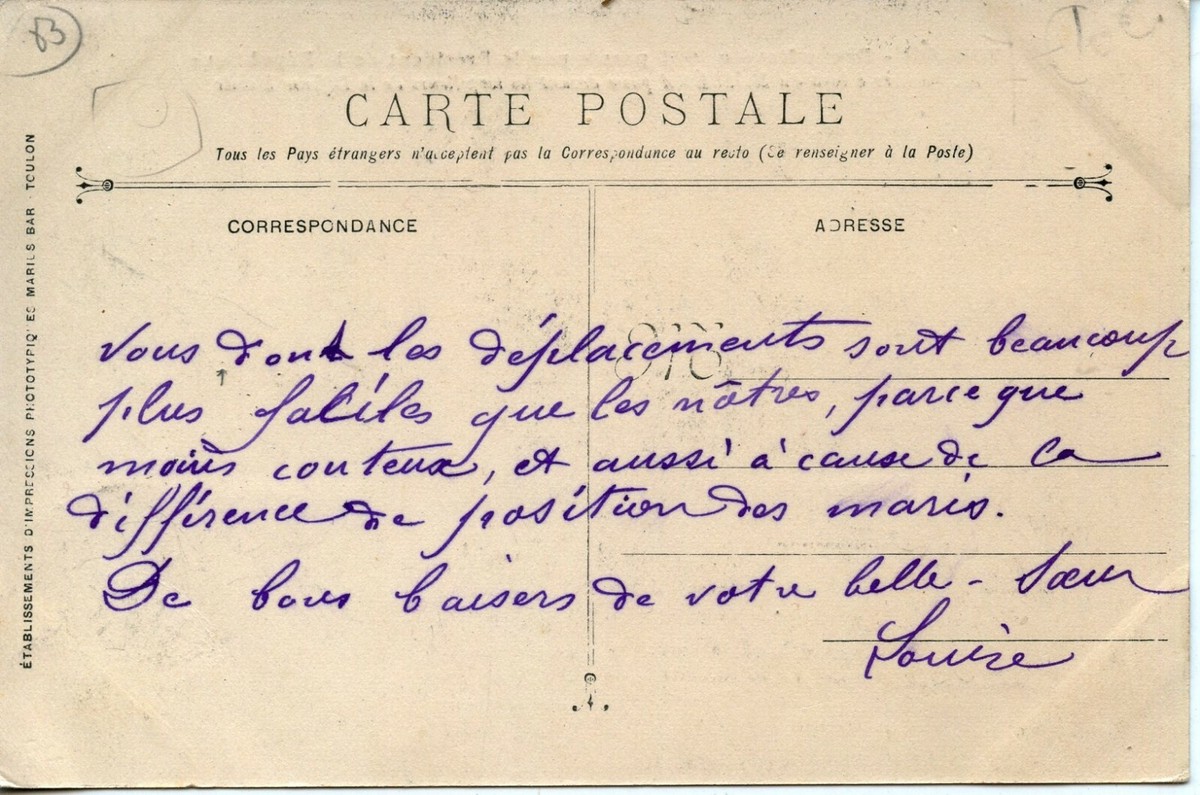 83
CARTE POSTALE
Tous les Pays étrangers n'acceptent pas la Correspondance au recto (Se renseigner à la Poste)
CORRESPONDANCE
ADRESSE
ÉTABLISSEMENTS D'IMPRESSIONS PHOTOTYPIQUES MARIUS BAR - TOULON
vous dont les déplacements sont beaucoup
plus faciles que les nôtres, parce que
moins couteux, et aussi à cause de la
différence de position des maris.
De bons baisers de votre belle-sœur
Louise